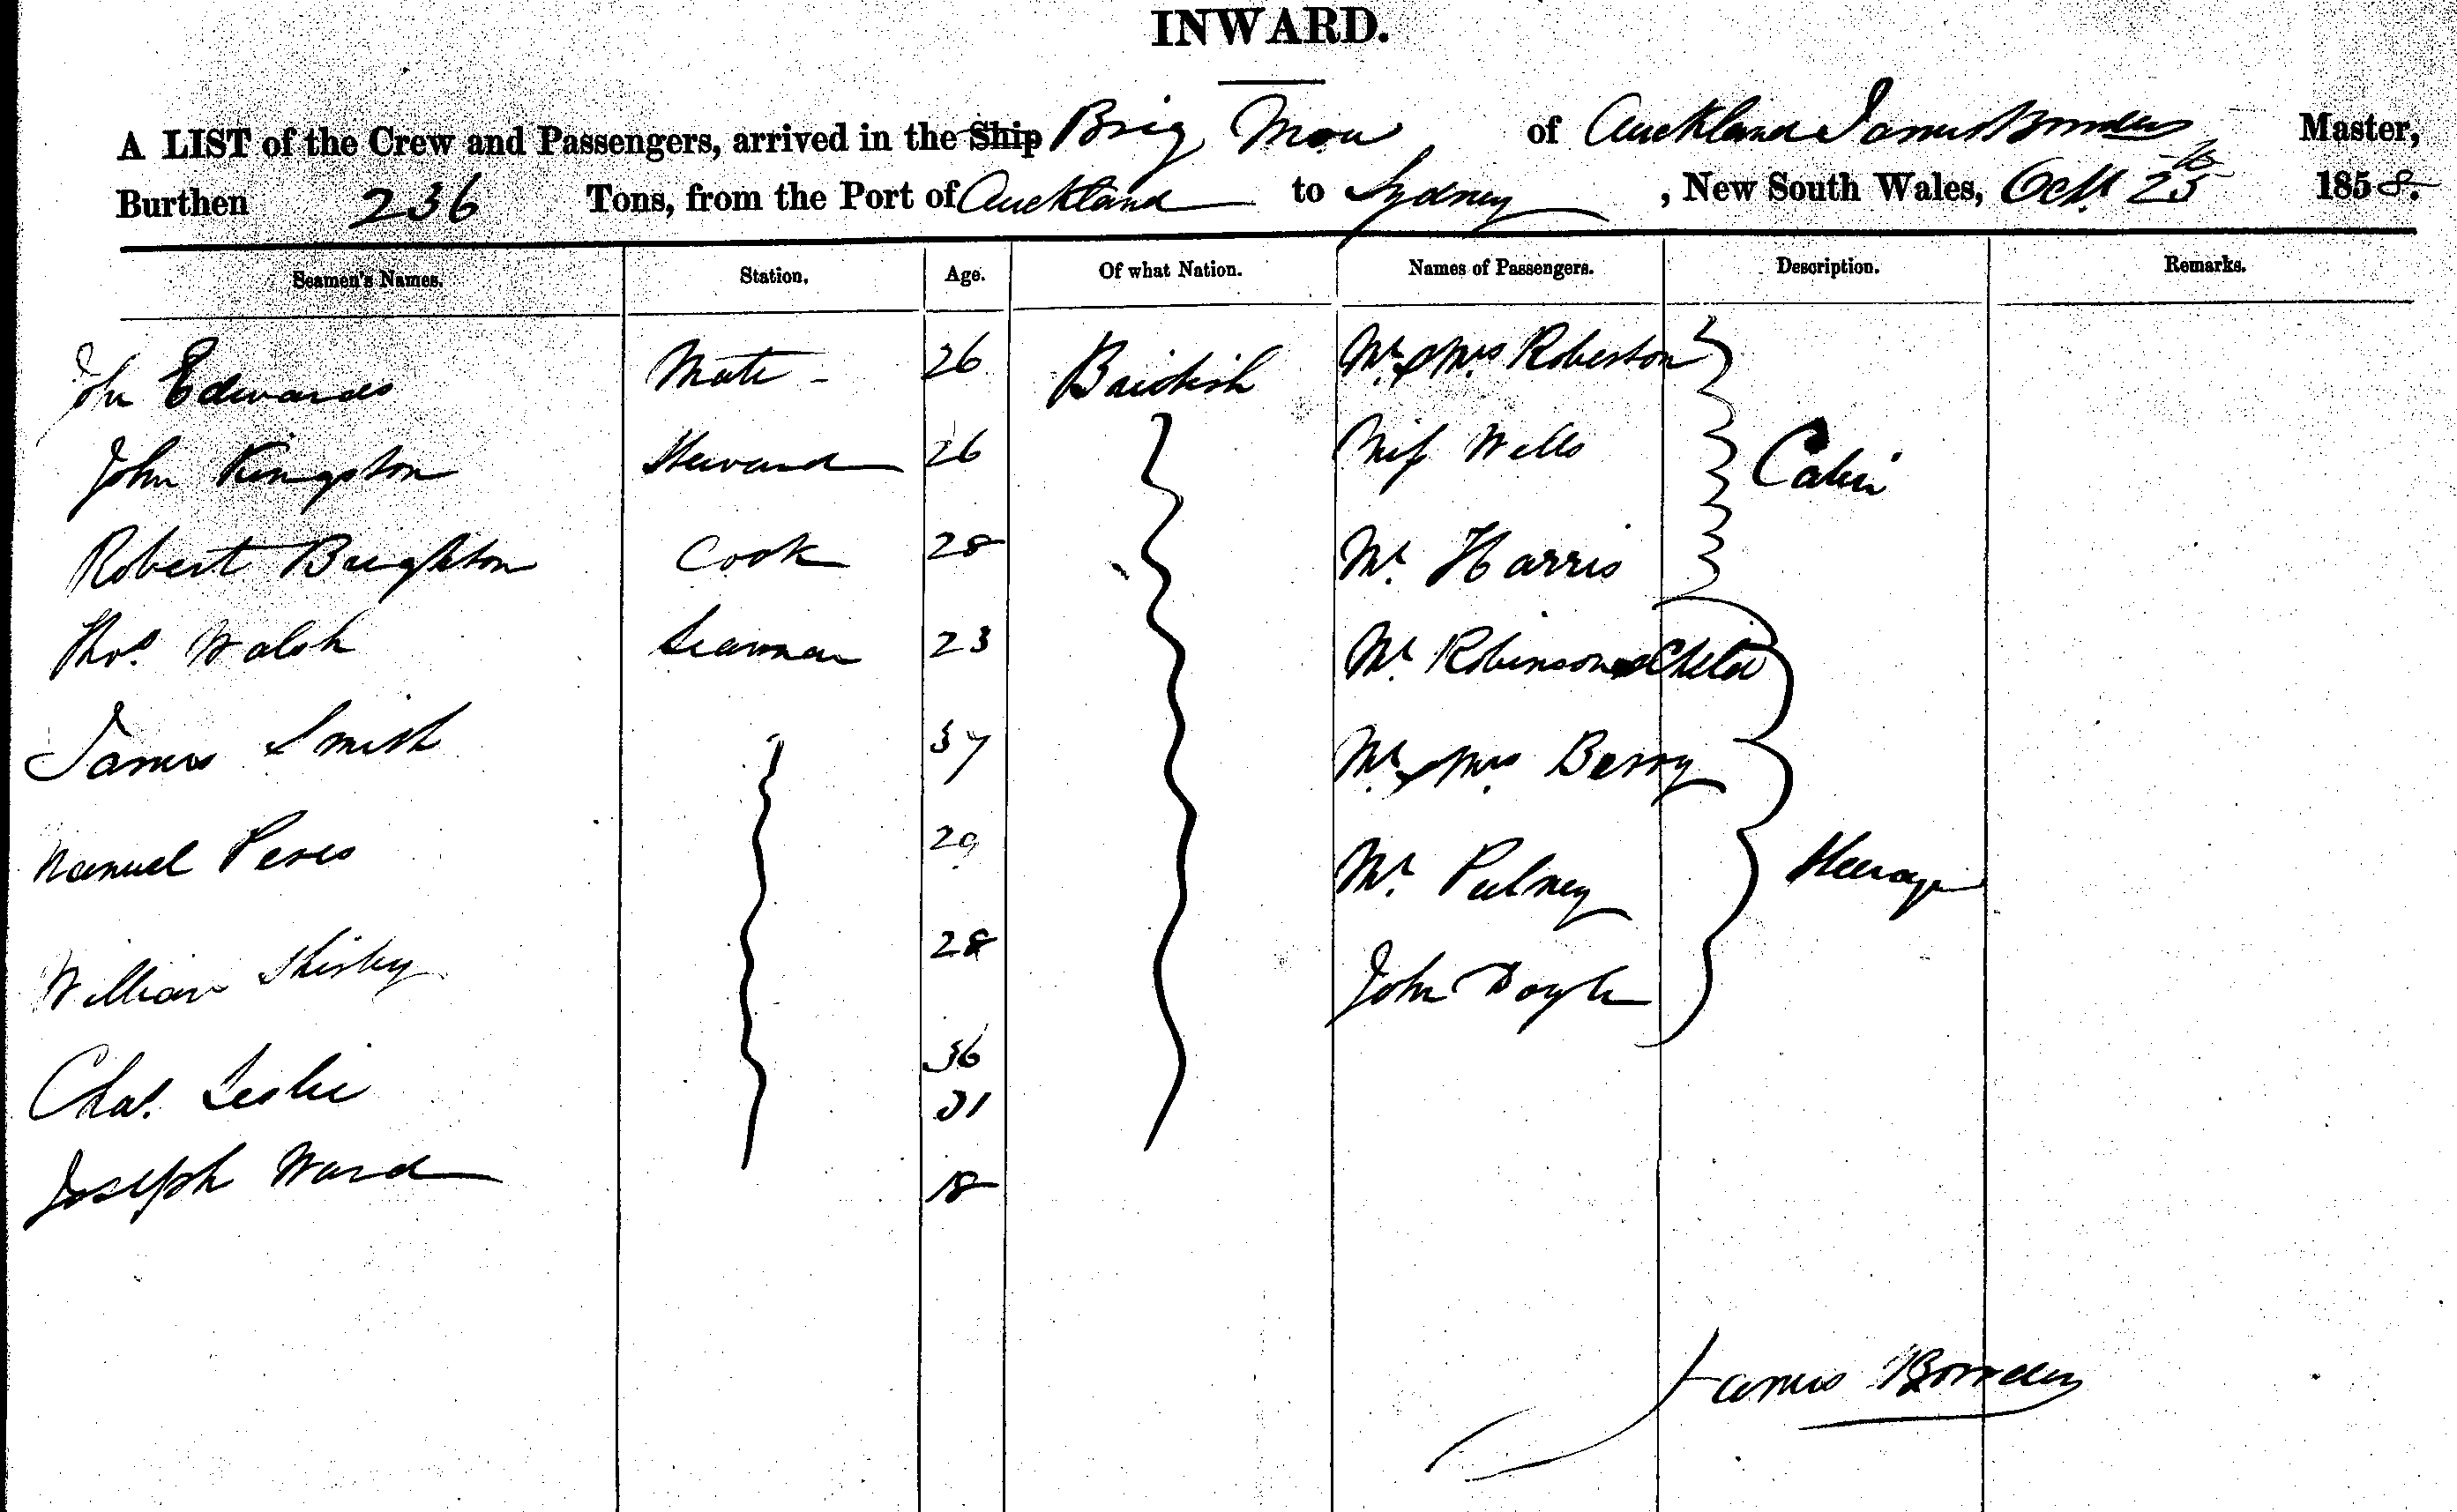 INWARD.
A LIST of the Crew and Passengers, arrived in the Ship Brig Moa of Auckland James Bowden Master,
Burthen 236 Tons, from the Port of Auckland to Sydney, New South Wales, Octr 25th 1858.
Seamen's Names. Station. Age. Of what Nation. Names of Passengers. Description. Remarks.
John Edwards Mate - 26 British Mr & Mrs Roberton
John Kingston Steward 26 Miss Wells Cabin
Robert Brighton Cook 28 Mr Harris
Thos Walsh Seaman 23 Mr Robinson & Child
James Smith 37 Mr & Mrs Berry
Manuel Peres 29 Mr Pulney Steerage
William 28 John Doyle
Chas. Leslie 36
31
Joseph Ward 18
James Bowden